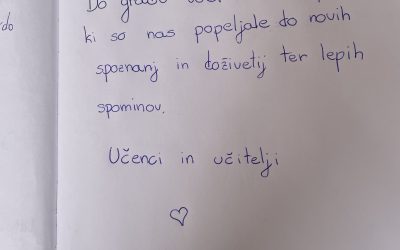 Do
ki so nas popeljale do novih
spoznanj in doživetij ter lepih
spominov.
Učenci in učitelji